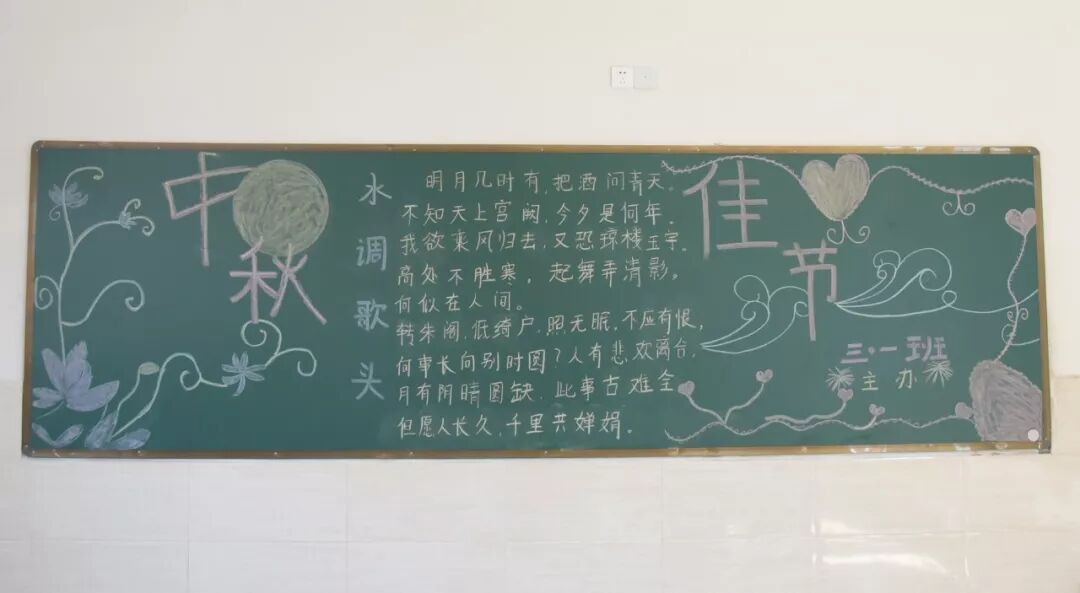 中秋
水调歌头
明月几时有,把酒问青天。
不知天上宫阙,今夕是何年。
我欲乘风归去,又恐琼楼玉宇,
高处不胜寒,起舞弄清影。
何似在人间。
转朱阁,低绮户,照无眠,不应有恨,
何事长向别时圆?人有悲,欢离合,
月有阴晴圆缺,此事古难全
但愿人长久,千里共婵娟。
佳节
三·一班
主办